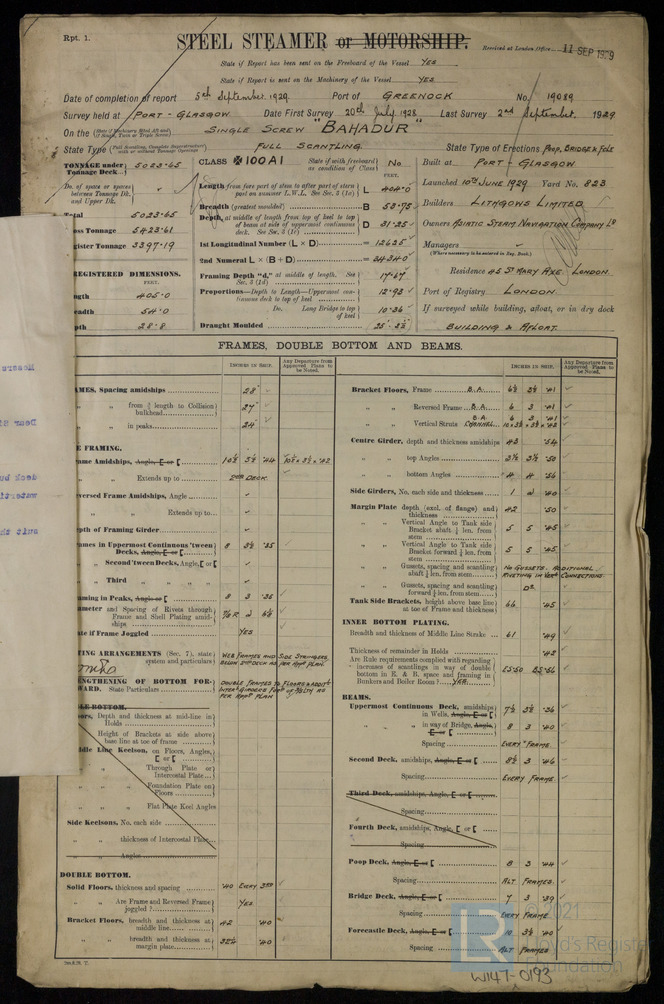 Rpt. 1.
STEEL STEAMER or MOTORSHIP.
Received at London Office 11 SEP 1929
State if Report has been sent on the Freeboard of the Vessel YES
State if Report is sent on the Machinery of the Vessel YES
Date of completion of report 5th September 1929 Port of GREENOCK No. 19089
Survey held at PORT-GLASGOW Date First Survey 20th July 1928 Last Survey 2nd September 1929
On the SINGLE SCREW "BAHADUR"
State Type FULL SCANTLING State Type of Erections POOP, BRIDGE & FCLE
TONNAGE under Tonnage Deck 5023.65
Do. of space or spaces between Tonnage Dk. and Upper Dk.
Total 5023.65
ross Tonnage 5423.61
egister Tonnage 3397.19
REGISTERED DIMENSIONS.
FEET.
ngth 405.0
eadth 54.0
pth 28.8
CLASS ✠100A1 State if with freeboard as condition of Class No
FEET.
Length from fore part of stem to after part of stern post on summer L.W.L. See Sec. 3 (1c) L 404.0
Breadth (greatest moulded) B 53.75
Depth, at middle of length from top of keel to top of beam at side of uppermost continuous deck. See Sec. 3 (1c) D 31.25
1st Longitudinal Number (L × D) = 12625
2nd Numeral L × (B + D) = 34340
Framing Depth "d," at middle of length. See Sec. 3 (1d) 17.67
Proportions—Depth to Length—Uppermost continuous deck to top of keel 12.93
Do. Long Bridge to top of keel 10.36
Draught Moulded
Built at PORT-GLASGOW
Launched 10th JUNE 1929 Yard No. 823
Builders LITHGOWS LIMITED
Owners ASIATIC STEAM NAVIGATION COMPANY Ld
Managers
(Where necessary to be entered in Reg. Book.)
Residence 45 ST MARY AXE LONDON
Port of Registry LONDON
If surveyed while building, afloat, or in dry dock
BUILDING & AFLOAT.
FRAMES, DOUBLE BOTTOM AND BEAMS.
INCHES IN SHIP. Any Departure from Approved Plans to be Noted.
INCHES IN SHIP. Any Departure from Approved Plans to be Noted.
AMES, Spacing amidships 28"
" " from 3/5 length to Collision bulkhead 27"
" " in peaks 24"
E FRAMING.
ame Amidships, Angle, E or [ 10½ 3½ .44 10½ × 3½ × .42
" " Extends up to 2ND DECK
versed Frame Amidships, Angle
" " Extends up to
epth of Framing Girder
ames in Uppermost Continuous 'tween Decks, Angle, E or [ 8 3½ .35
" Second 'tween Decks, Angle, [ or [
" Third "
aming in Peaks, Angle or [ 8 3 .35
ameter and Spacing of Rivets through Frame and Shell Plating amidships
ate if Frame Joggled YES
TING ARRANGEMENTS (Sec. 7), state system and particulars WEB FRAMES AND SIDE STRINGERS BELOW 2ND DECK AS PER APPD PLAN.
ENGTHENING OF BOTTOM FORWARD. State Particulars DOUBLE FRAMES TO FLOORS & ADDITL INTERL GIRDERS FORD OF 3/5 LTH AS PER APPD PLAN
LE BOTTOM.
oors, Depth and thickness at mid-line in Holds
Height of Brackets at side above base line at toe of frame
ddle Line Keelson, on Floors, Angles, [ or [
" " Through Plate or Intercostal Plate
" " Foundation Plate on Floors
" " Flat Plate Keel Angles
Side Keelsons, No. each side
" " thickness of Intercostal Plate
" " Angles
DOUBLE BOTTOM.
Solid Floors, thickness and spacing .40 EVERY 3RD
" " Are Frame and Reversed Frame joggled? YES
Bracket Floors, breadth and thickness at middle line 42 .40
" " breadth and thickness at margin plate 32½ .40
Bracket Floors, Frame B.A. 6½ 3½ .41
" " Reversed Frame B.A. 6 3 .41
" " Vertical Struts B.A. 6 3 .41 CHANNEL 10 × 3½ × 3½ × .42
Centre Girder, depth and thickness amidships 43 .54
" " top Angles 3½ 3½ .50
" " bottom Angles 4 4 .54
Side Girders, No. each side and thickness 1 @ .40
Margin Plate depth (excl. of flange) and thickness 42 .50
" " Vertical Angle to Tank side Bracket abaft ¼ len. from stem 5 5 .45
" " Vertical Angle to Tank side Bracket forward ¼ len. from stem 5 5 .45
" " Gussets, spacing and scantling abaft ¼ len. from stem NO GUSSETS. ADDITIONAL RIVETING IN VERT CONNECTIONS
" " Gussets, spacing and scantling forward ¼ len. from stem Do.
Tank Side Brackets, height above base line at toe of Frame and thickness 66 .45
INNER BOTTOM PLATING.
Breadth and thickness of Middle Line Strake 61 .49
Thickness of remainder in Holds .42
Are Rule requirements complied with regarding increases of scantlings in way of double bottom in E. & B. space and framing in Bunkers and Boiler Room? YES
BEAMS.
Uppermost Continuous Deck, amidships in Wells, Angle, E or [ 7½ 3½ .36
" " in way of Bridge, Angle, E or [ 8 3 .40
Spacing EVERY FRAME
Second Deck, amidships, Angle, E or [ 8½ 3 .46
Spacing EVERY FRAME.
Third Deck, amidships, Angle, E or [
Spacing
Fourth Deck, amidships, Angle, [ or [
Spacing
Poop Deck, Angle, E or [ 8 3 .44
Spacing ALT FRAMES
Bridge Deck, Angle, E or [ 7 3 .39
Spacing EVERY FRAME
Forecastle Deck, Angle, E or [ 10 3½ .40
Spacing ALT FRAMES
LR
© 2021
Lloyd's Register Foundation
W147-0193